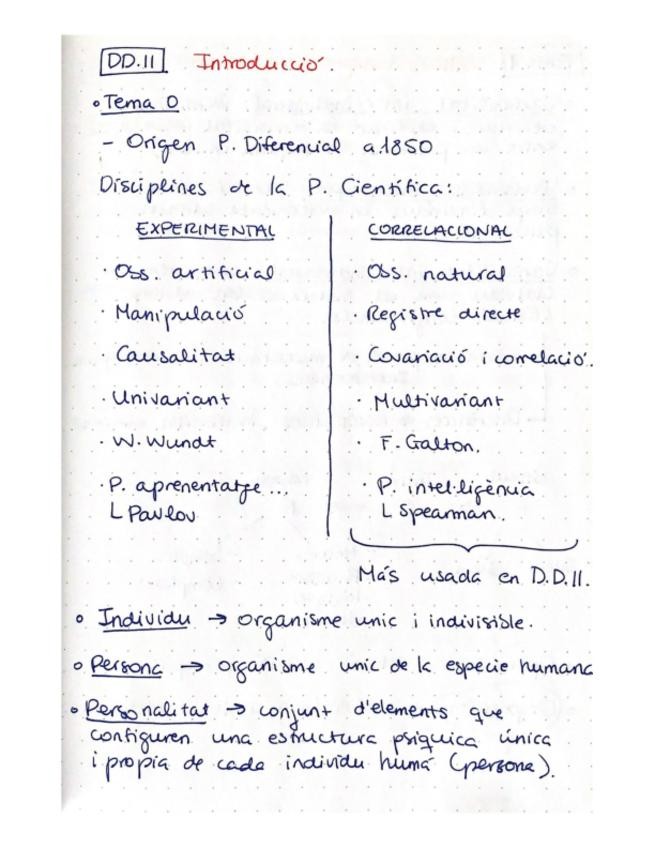 DD.II Introducció.
• Tema 0
- Origen P. Diferencial a 1850.
Disciplines de la P. Científica:
EXPERIMENTAL
· Oss. artificial
· Manipulació
· Causalitat
· Univariant
· W. Wundt
· P. aprenentatge ...
L Pavlov
CORRELACIONAL
· Oss. natural
· Registre directe
· Covariació i correlació.
· Multivariant
· F. Galton.
· P. intel·ligència
L Spearman.
Más usada en D.D.II.
• Individu → organisme unic i indivisible.
• Persona → organisme unic de la especie humana
• Personalitat → conjunt d'elements que
configuren una estructura psíquica única
i propia de cada individu humá (persona).